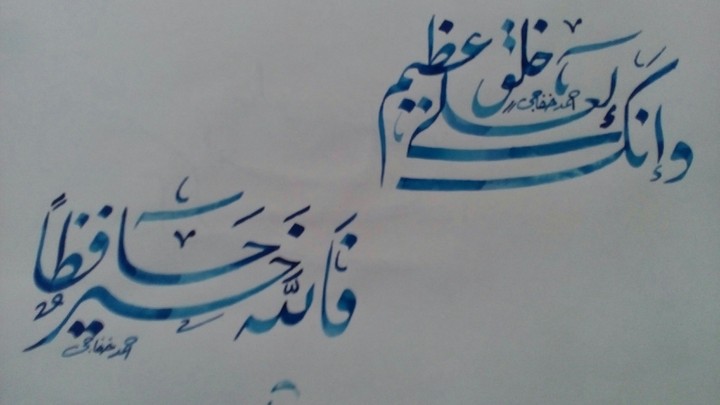 وإنك لعلى خلق عظيم
احمد خفاجي
فالله خير حافظاً
احمد خفاجي